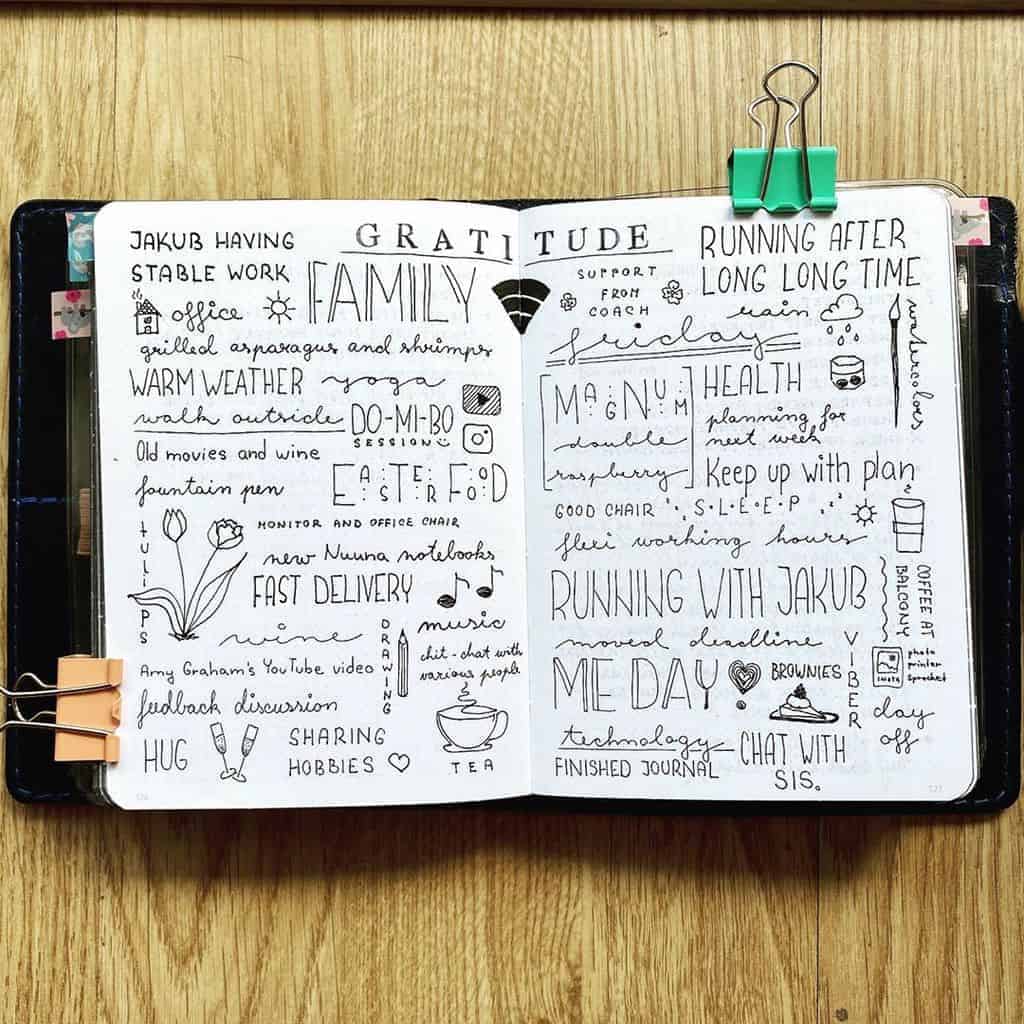 GRATITUDE
JAKUB HAVING
STABLE WORK
office
FAMILY
grilled asparagus and shrimps
WARM WEATHER
yoga
walk outside
DO-MI-BO
SESSION
Old movies and wine
fountain pen
EASTER FOOD
TULIPS
MONITOR AND OFFICE CHAIR
new Nuuna notebooks
FAST DELIVERY
wine
DRAWING
music
chit-chat with
various people
Amy Graham's YouTube video
feedback discussion
HUG
SHARING
HOBBIES
TEA
SUPPORT
FROM
COACH
RUNNING AFTER
LONG LONG TIME
friday
rain
watercolores
MAGNUM
double
raspberry
HEALTH
planning for
next week
Keep up with plan
GOOD CHAIR
S·L·E·E·P
flexi working hours
RUNNING WITH JAKUB
COFFEE AT
BALCONY
moved deadline
ME DAY
BROWNIES
VIBER
photo
printer
sprocket
insta
day
off
technology
CHAT WITH
SIS.
FINISHED JOURNAL